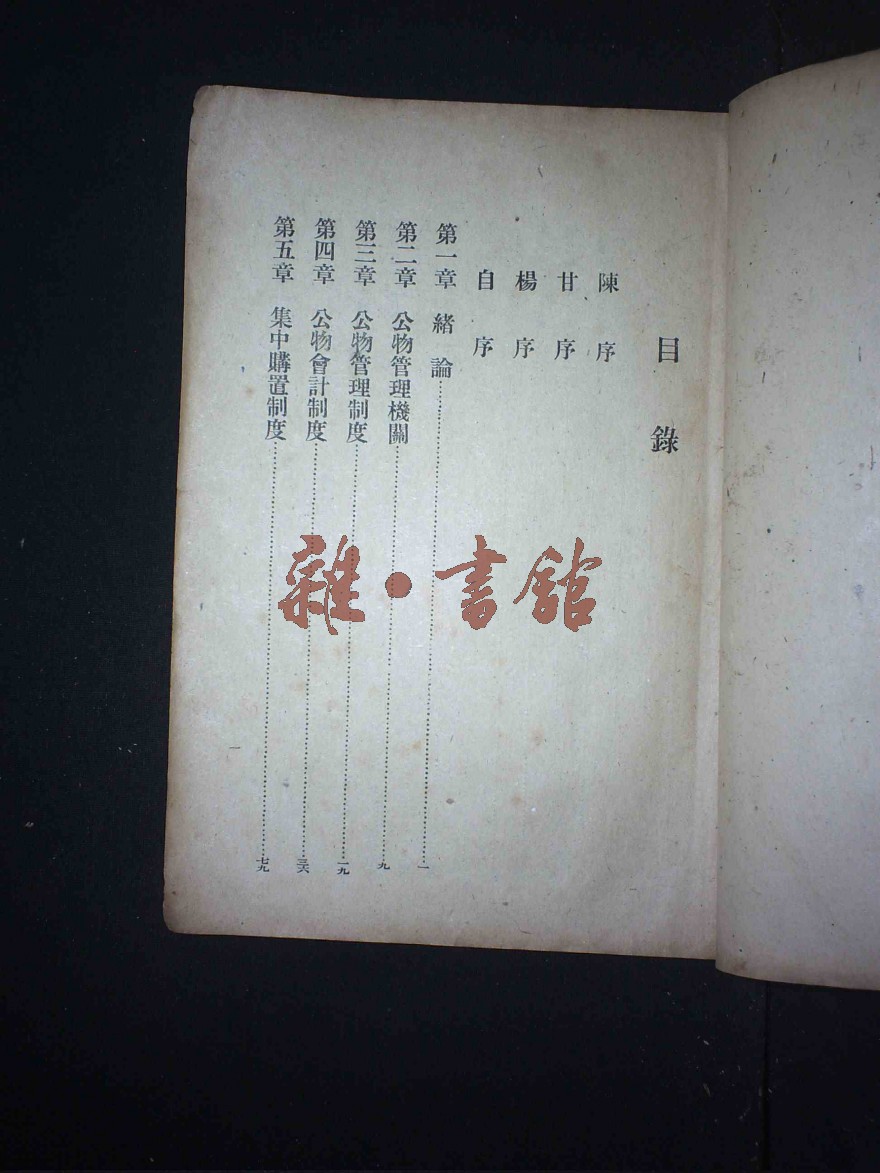 目錄
陳序
甘序
楊序
自序
第一章 緒論……一
第二章 公物管理機關……九
第三章 公物管理制度……一九
第四章 公物會計制度……三六
第五章 集中購置制度……七九
一
雜·書館